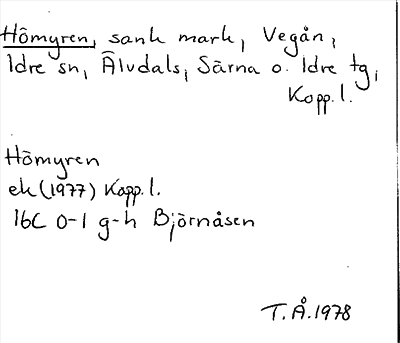 Hömyren, sank mark, Vegån,
Idre sn, Älvdals, Särna o. Idre tg,
Kopp. l.
Hömyren
ek (1977) Kopp. l.
16C 0-1 g-h Björnåsen
T.Å. 1978